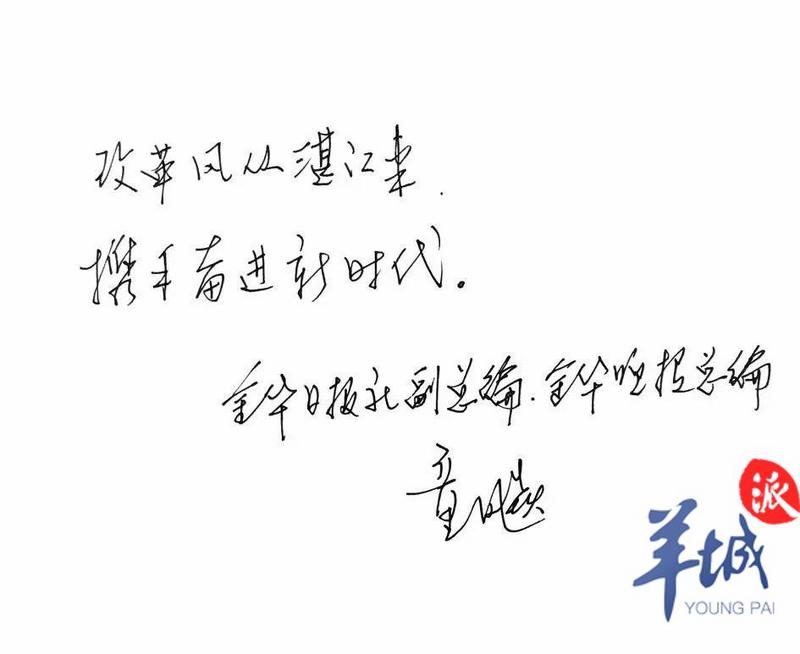 改革风从湛江来，
携手奋进新时代。
金华日报社副总编、金华晚报总编
童
派
羊城
YOUNG PAI